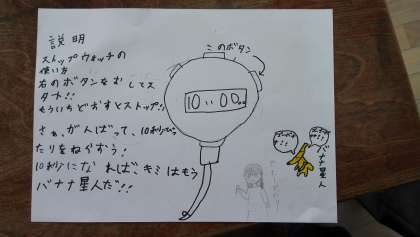 説明
ストップウォッチの
使い方
右のボタンをむしてス
タート!!
もういちどおすとストップ!!
さぁ、がんばって、10秒ぴっ
たりをねらおう!
10秒になれば、キミはもう
バナナ星人だ!!
このボタン
10:00
バナナ星人